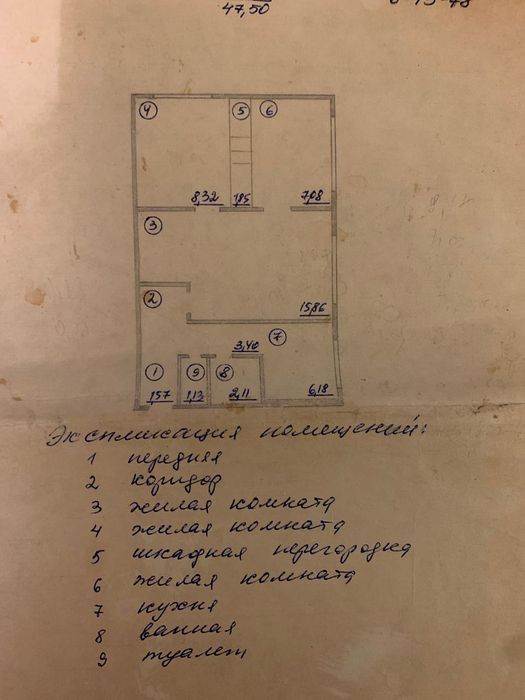 47,50
4
5
6
8,32
1,85
7,08
3
2
15,86
7
3,40
1
9
8
1,57
1,13
2,11
6,18
Экспликация помещений:
1 передняя
2 коридор
3 жилая комната
4 жилая комната
5 шкафная перегородка
6 жилая комната
7 кухня
8 ванная
9 туалет